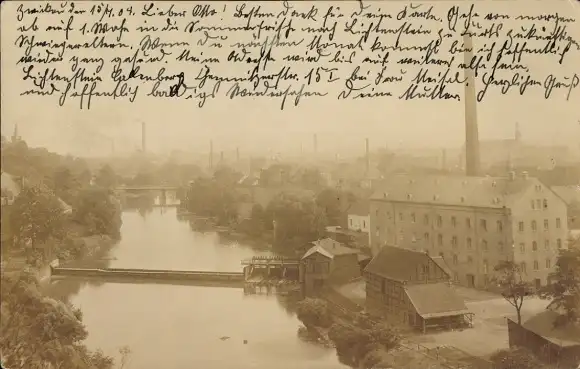 Zwickau den 15/7. 04. Lieber Otto! Besten Dank für Deine Karte. Gehe von morgen
ab auf 1. Woche in die Sommerfrische nach Lichtenstein zu Kurts zukünftigen
Schwiegereltern. Wenn Du nächsten Monat kommst bin ich hoffentlich
wieder ganz gesund. Meine Adresse wird bis auf weiteres also sein
Lichtenstein Callnberg 15 I bei Frau Meisel. Herzlichen Gruß
und hoffentlich baldigs Wiedersehen Deine Mutter.